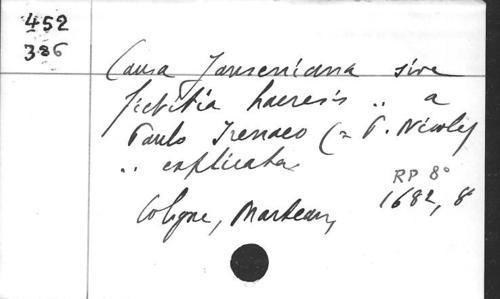 452
386
Causa Janseniana sive
fictitia haeresis .. a
Paulo Irenaeo (= P. Nicole)
.. explicata
RP 8°
Cologne, Marteau, 1682, 8°